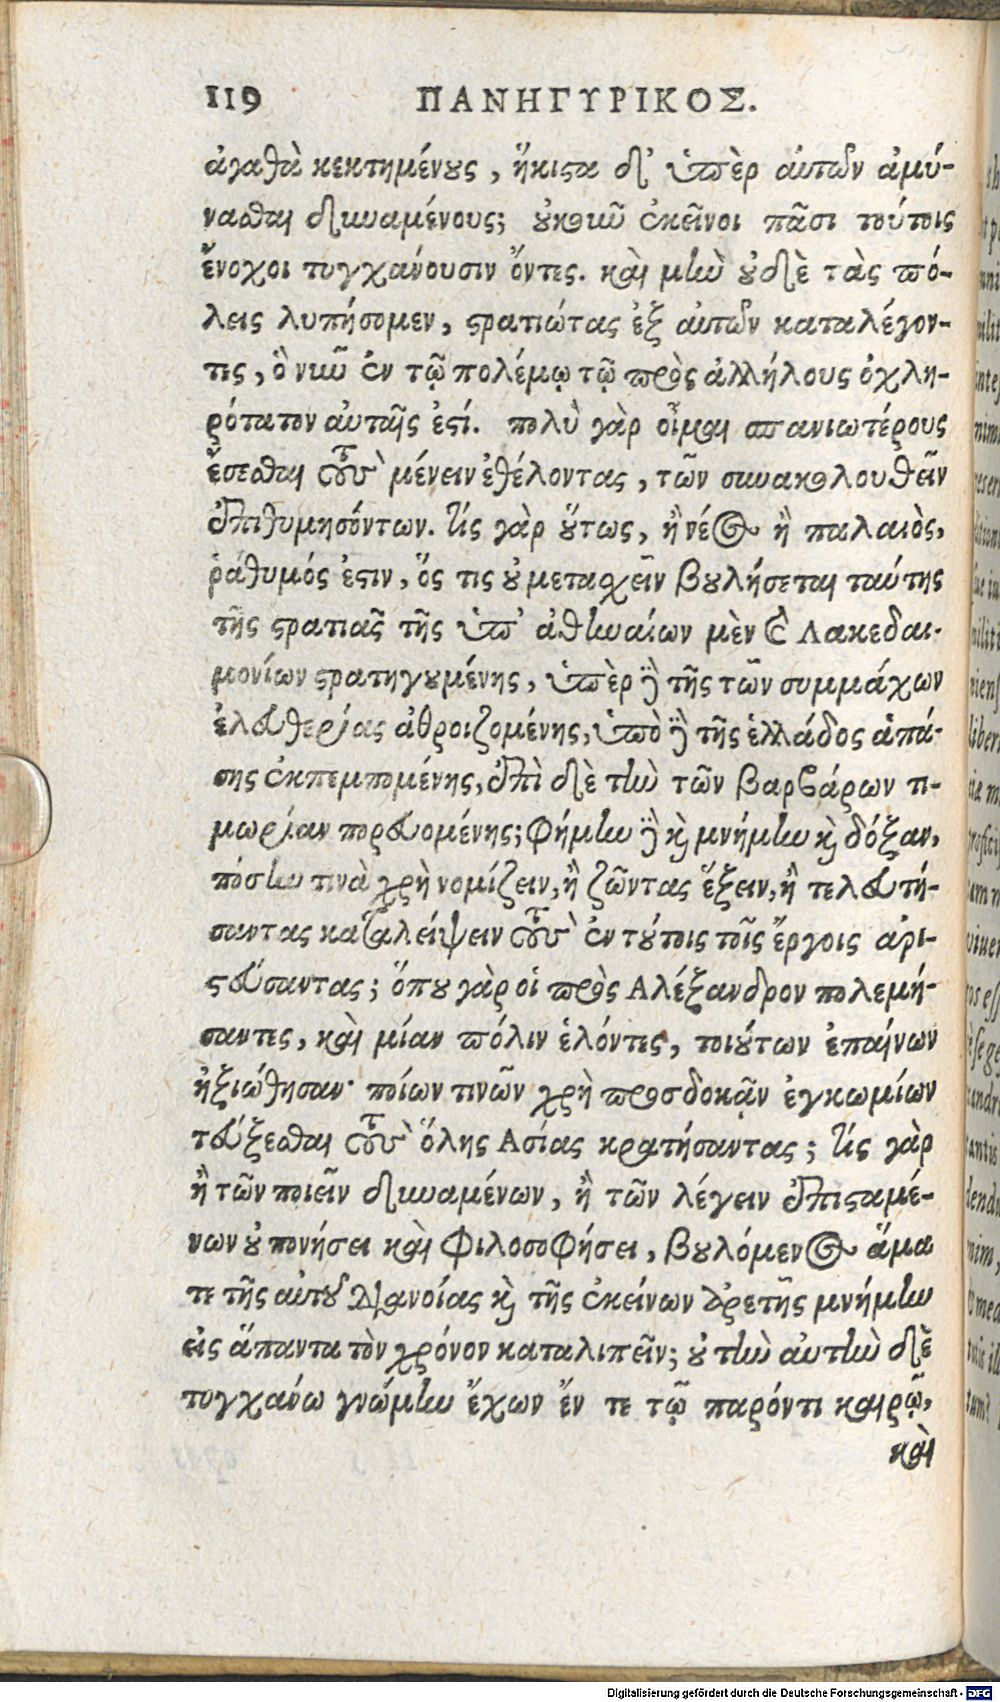 119 ΠΑΝΗΓΥΡΙΚΟΣ.
ἀγαθὰ κεκτημένους, ἥκιστα δ' ὑπὲρ αὐτῶν ἀμύ-
νασθαι δυναμένους; οὐκοῦν ἐκεῖνοι πᾶσι τούτοις
ἔνοχοι τυγχάνουσιν ὄντες. καὶ μὴν οὐδὲ τὰς πό-
λεις λυπήσομεν, στρατιώτας ἐξ αὐτῶν καταλέγον-
τες, ὃ νῦν ἐν τῷ πολέμῳ τῷ πρὸς ἀλλήλους ὀχλη-
ρότατον αὐταῖς ἐστί. πολὺ γὰρ οἶμαι σπανιωτέρους
ἔσεσθαι τοὺς μένειν ἐθέλοντας, τῶν συνακολουθεῖν
ἐπιθυμησόντων. τίς γὰρ οὕτως, ἢ νέος ἢ παλαιὸς,
ῥάθυμός ἐστιν, ὅς τις οὐ μετασχεῖν βουλήσεται ταύτης
τῆς στρατιᾶς τῆς ὑπ' ἀθηναίων μὲν καὶ Λακεδαι-
μονίων στρατηγουμένης, ὑπὲρ δὲ τῆς τῶν συμμάχων
ἐλευθερίας ἀθροιζομένης, ὑπὸ δὲ τῆς ἑλλάδος ἁπά-
σης ἐκπεμπομένης, ἐπὶ δὲ τὴν τῶν βαρβάρων τι-
μωρίαν πορευομένης; Φήμην δὲ καὶ μνήμην καὶ δόξαν,
πόσην τινὰ χρὴ νομίζειν, ἢ ζῶντας ἕξειν, ἢ τελευτή-
σαντας καταλείψειν τοὺς ἐν τούτοις τοῖς ἔργοις ἀρι-
στεύσαντας; ὅπου γὰρ οἱ πρὸς Αλέξανδρον πολεμή-
σαντες, καὶ μίαν πόλιν ἑλόντες, τοιούτων ἐπαίνων
ἠξιώθησαν· ποίων τινῶν χρὴ προσδοκᾷν ἐγκωμίων
τεύξεσθαι τοὺς ὅλης Ασίας κρατήσαντας; τίς γὰρ
ἢ τῶν ποιεῖν δυναμένων, ἢ τῶν λέγειν ἐπισταμέ-
νων οὐ πονήσει καὶ Φιλοσοφήσει, βουλόμενος ἅμα
τε τῆς αὑτοῦ διανοίας καὶ τῆς ἐκείνων ἀρετῆς μνήμην
εἰς ἅπαντα τὸν χρόνον καταλιπεῖν; οὐ τὴν αὐτὴν δὲ
τυγχάνω γνώμην ἔχων ἔν τε τῷ παρόντι καιρῷ,
καὶ
Digitalisierung gefördert durch die Deutsche Forschungsgemeinschaft - DFG